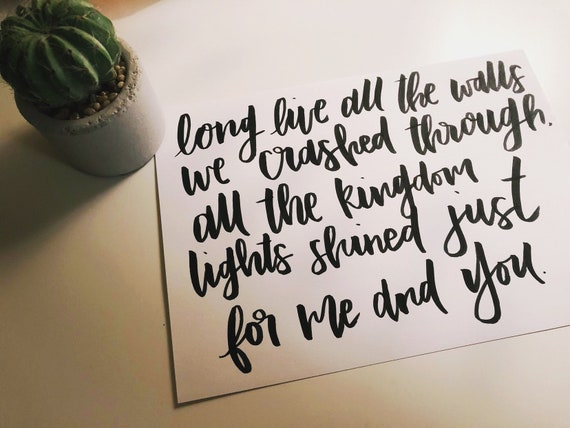 long live all the walls
we crashed through.
all the kingdom
lights shined just
for me and you.